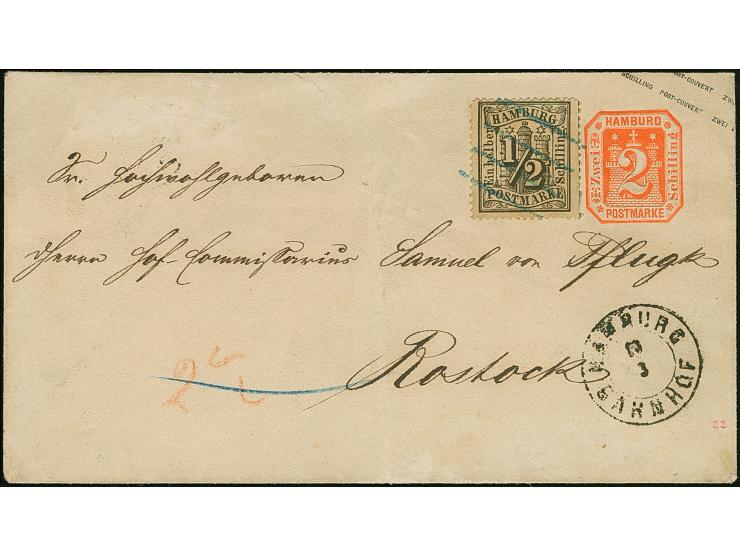 SCHILLING POST-COUVERT ZWEI
OST-COUVERT ZW
HAMBURG
Ein halber
1/2
Schilling
POSTMARKE
HAMBURG
Zwei
2
Schilling
POSTMARKE
Sr. Hochwohlgeboren
Herrn Hof-Commissarius Samuel von Pflugk
Rostock
HAMBURG
3
BAHNHOF
2